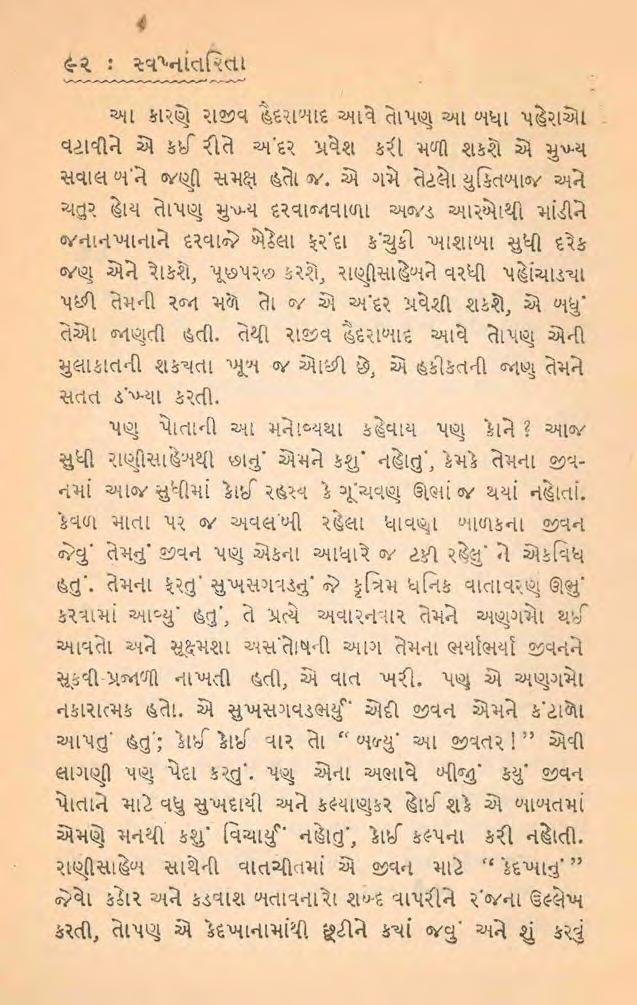 ૯૨ : સ્વપ્નાંતરિતા
આ કારણે રાજીવ હૈદરાબાદ આવે તોપણ આ બધા પહેરાઓ
વટાવીને એ કઈ રીતે અંદર પ્રવેશ કરી મળી શકશે એ મુખ્ય
સવાલ બંને જણી સમક્ષ હતો જ. એ ગમે તેટલો યુક્તિબાજ અને
ચતુર હોય તોપણ મુખ્ય દરવાજાવાળા અજડ આરબોથી માંડીને
જનાનખાનાને દરવાજે બેઠેલા ફરંદા કંચુકી ખાશાબા સુધી દરેક
જણ એને રોકશે, પૂછપરછ કરશે, રાણીસાહેબને વરધી પહોંચાડ્યા
પછી તેમની રજા મળે તો જ એ અંદર પ્રવેશી શકશે, એ બધું
તેઓ જાણતી હતી. તેથી રાજીવ હૈદરાબાદ આવે તોપણ એની
મુલાકાતની શક્યતા ખૂબ જ ઓછી છે, એ હકીકતની જાણ તેમને
સતત ડંખ્યા કરતી.
પણ પોતાની આ મનોવ્યથા કહેવાય પણ કોને? આજ
સુધી રાણીસાહેબથી છાનું એમને કશું નહોતું, કેમકે તેમના જીવ-
નમાં આજ સુધીમાં કોઈ રહસ્ય કે ગૂંચવણ ઊભાં જ થયાં નહોતાં.
કેવળ માતા પર જ અવલંબી રહેલા ધાવણા બાળકના જીવન
જેવું તેમનું જીવન પણ એકના આધારે જ ટકી રહેલું ને એકવિધ
હતું. તેમના ફરતું સુખસગવડનું જે કૃત્રિમ ધનિક વાતાવરણ ઊભું
કરવામાં આવ્યું હતું, તે પ્રત્યે અવારનવાર તેમને અણગમો થઈ
આવતો અને સૂક્ષ્મશા અસંતોષની આગ તેમના ભર્યાભર્યા જીવનને
સૂકવી-પ્રજાળી નાખતી હતી, એ વાત ખરી. પણ એ અણગમો
નકારાત્મક હતો. એ સુખસગવડભર્યું એદી જીવન એમને કંટાળો
આપતું હતું; કોઈ કોઈ વાર તો “બળ્યું આ જીવતર!” એવી
લાગણી પણ પેદા કરતું. પણ એના અભાવે બીજું કયું જીવન
પોતાને માટે વધુ સુખદાયી અને કલ્યાણકર હોઈ શકે એ બાબતમાં
એમણે મનથી કશું વિચાર્યું નહોતું, કોઈ કલ્પના કરી નહોતી.
રાણીસાહેબ સાથેની વાતચીતમાં એ જીવન માટે “કેદખાનું”
જેવો કઠોર અને કડવાશ બતાવનારો શબ્દ વાપરીને રંજના ઉલ્લેખ
કરતી, તોપણ એ કેદખાનામાંથી છૂટીને ક્યાં જવું અને શું કરવું